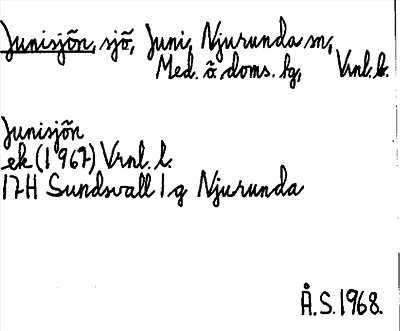 Junisjön, sjö, Juni, Njurunda sn,
Med. ö. doms. hg, Vrnl. l.
Junisjön
ek (1967) Vrnl. l.
17H Sundsvall 1 g Njurunda
Å.S. 1968.